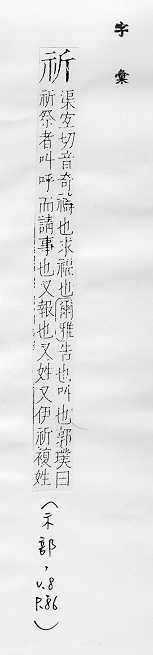 字彙
祈
渠宜切音奇禱也求福也爾雅告也叫也郭璞曰
祈祭者叫呼而請事也又報也又姓又伊祈複姓
(示部,
V.8
P.86)